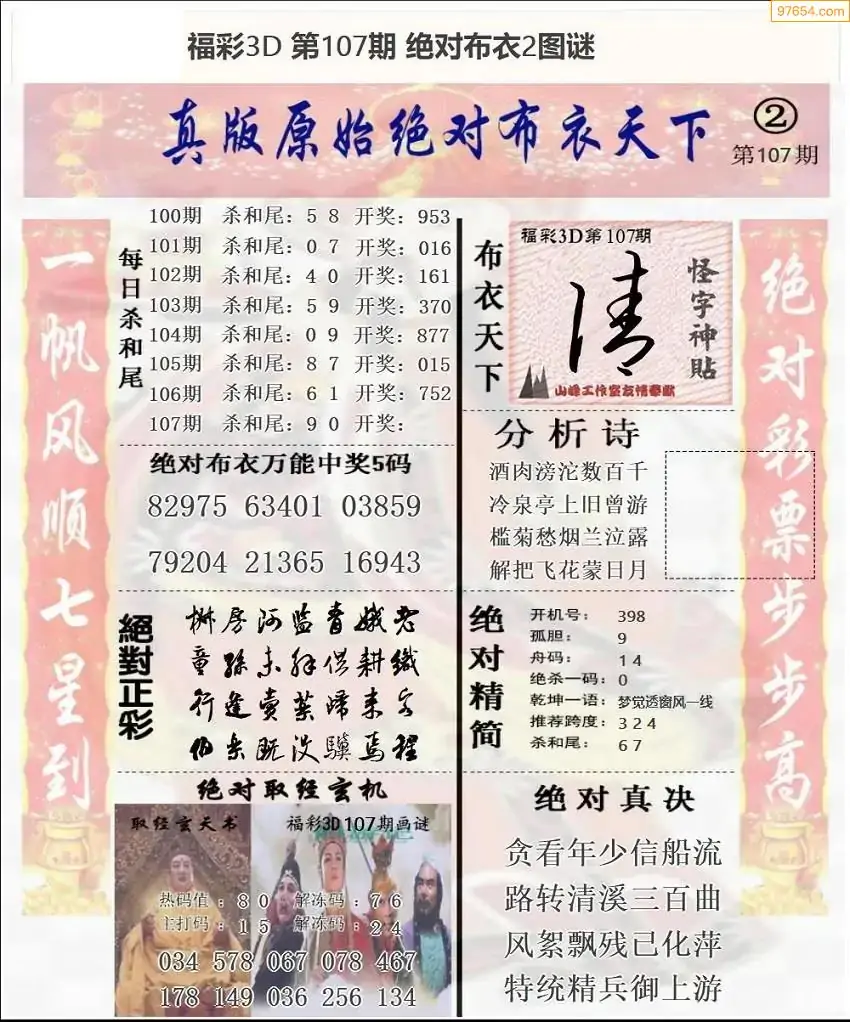 97654.com
福彩3D 第107期 绝对布衣2图谜
真版原始绝对布衣天下
②
第107期
一帆风顺七星到
每日杀和尾
100期 杀和尾：5 8 开奖：953
101期 杀和尾：0 7 开奖：016
102期 杀和尾：4 0 开奖：161
103期 杀和尾：5 9 开奖：370
104期 杀和尾：0 9 开奖：877
105期 杀和尾：8 7 开奖：015
106期 杀和尾：6 1 开奖：752
107期 杀和尾：9 0 开奖：
绝对布衣万能中奖5码
82975 63401 03859
79204 21365 16943
絕對正彩
房河监青娥老
童孙未解供耕织
行逢卖药归来客
伯乐既没骥焉程
绝对取经玄机
取经玄天书
福彩3D107期画谜
热码值：8 0 解冻码：7 6
主打码：1 5 解冻码：2 4
034 578 067 078 467
178 149 036 256 134
布衣天下
福彩3D第107期
清
怪字神贴
山峰工作室友情奉献
分析诗
酒肉滂沱数百千
冷泉亭上旧曾游
槛菊愁烟兰泣露
解把飞花蒙日月
绝对精简
开机号： 398
孤胆： 9
舟码： 1 4
绝杀一码：0
乾坤一语：梦觉透窗风一线
推荐跨度：3 2 4
杀和尾： 6 7
绝对真决
贪看年少信船流
路转清溪三百曲
风絮飘残已化萍
特统精兵御上游
绝对彩票步步高